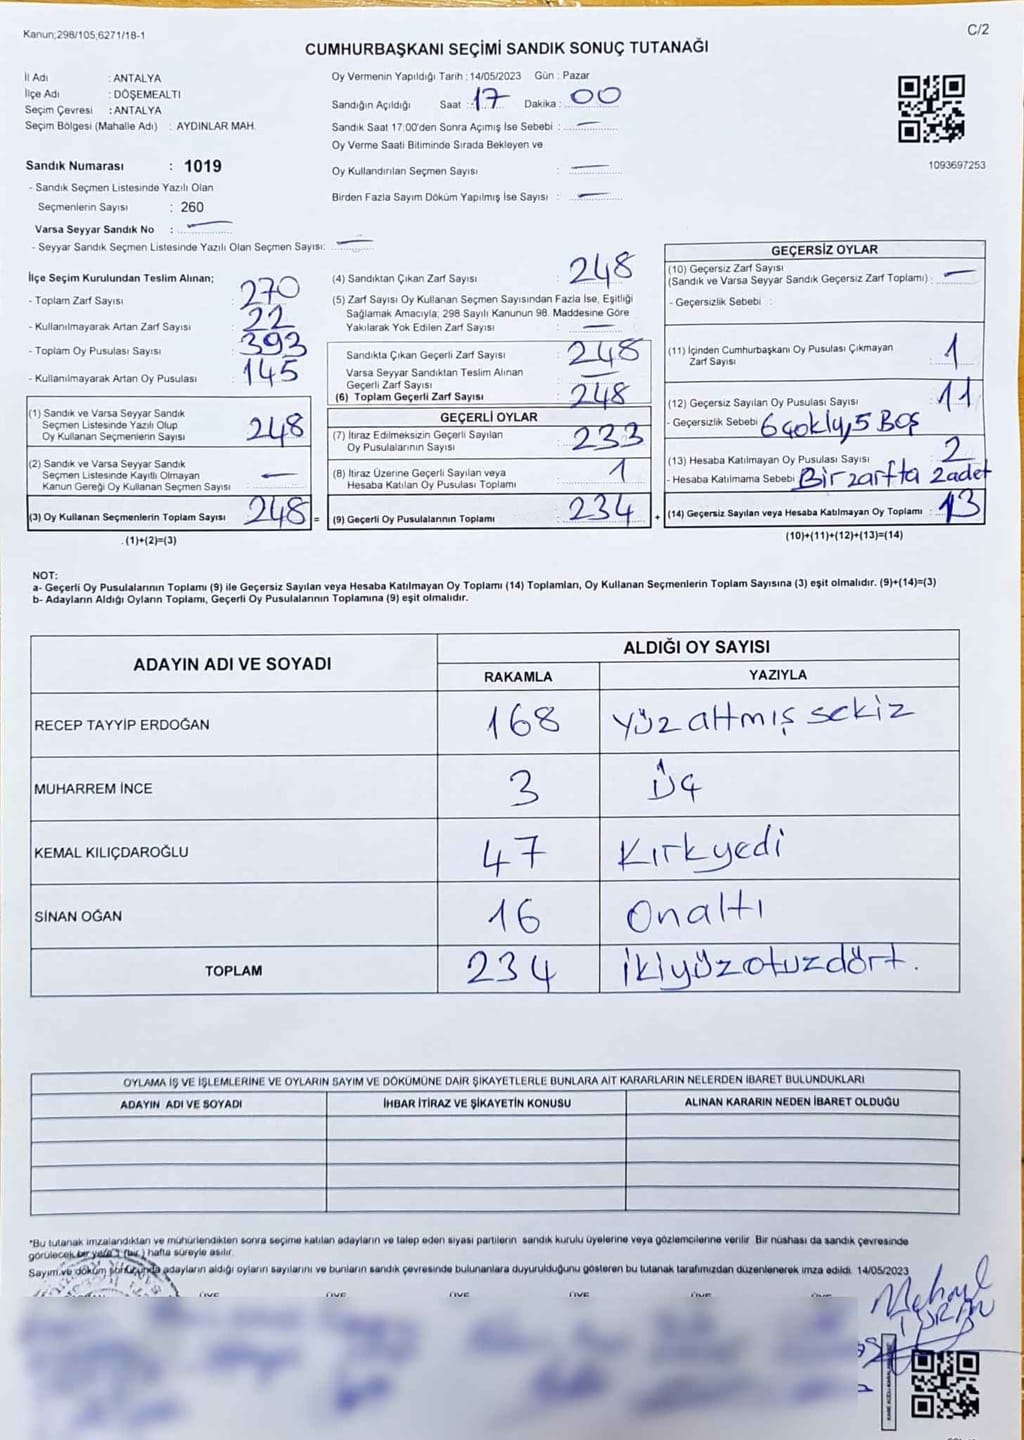 Kanun;298/105,6271/18-1
C/2
CUMHURBAŞKANI SEÇİMİ SANDIK SONUÇ TUTANAĞI
İl Adı : ANTALYA
İlçe Adı : DÖŞEMEALTI
Seçim Çevresi : ANTALYA
Seçim Bölgesi (Mahalle Adı) : AYDINLAR MAH.
Oy Vermenin Yapıldığı Tarih : 14/05/2023 Gün : Pazar
Sandığın Açıldığı Saat : 17 Dakika : 00
Sandık Saat 17:00'den Sonra Açımış İse Sebebi : —
Oy Verme Saati Bitiminde Sırada Bekleyen ve
Oy Kullandırılan Seçmen Sayısı : —
Birden Fazla Sayım Döküm Yapılmış İse Sayısı : —
1093697253
Sandık Numarası : 1019
- Sandık Seçmen Listesinde Yazılı Olan
Seçmenlerin Sayısı : 260
Varsa Seyyar Sandık No : —
- Seyyar Sandık Seçmen Listesinde Yazılı Olan Seçmen Sayısı: —
İlçe Seçim Kurulundan Teslim Alınan;
- Toplam Zarf Sayısı : 270
- Kullanılmayarak Artan Zarf Sayısı : 22
- Toplam Oy Pusulası Sayısı : 393
- Kullanılmayarak Artan Oy Pusulası : 145
(1) Sandık ve Varsa Seyyar Sandık
Seçmen Listesinde Yazılı Olup
Oy Kullanan Seçmenlerin Sayısı : 248
(2) Sandık ve Varsa Seyyar Sandık
Seçmen Listesinde Kayıtlı Olmayan
Kanun Gereği Oy Kullanan Seçmen Sayısı : —
(3) Oy Kullanan Seçmenlerin Toplam Sayısı : 248 =
(1)+(2)=(3)
(4) Sandıktan Çıkan Zarf Sayısı : 248
(5) Zarf Sayısı Oy Kullanan Seçmen Sayısından Fazla İse, Eşitliği
Sağlamak Amacıyla; 298 Sayılı Kanunun 98. Maddesine Göre
Yakılarak Yok Edilen Zarf Sayısı : —
Sandıkta Çıkan Geçerli Zarf Sayısı : 248
Varsa Seyyar Sandıktan Teslim Alınan
Geçerli Zarf Sayısı : —
(6) Toplam Geçerli Zarf Sayısı : 248
GEÇERLİ OYLAR
(7) İtiraz Edilmeksizin Geçerli Sayılan
Oy Pusulalarının Sayısı : 233
(8) İtiraz Üzerine Geçerli Sayılan veya
Hesaba Katılan Oy Pusulası Toplamı : 1
(9) Geçerli Oy Pusulalarının Toplamı : 234 +
GEÇERSİZ OYLAR
(10) Geçersiz Zarf Sayısı
(Sandık ve Varsa Seyyar Sandık Geçersiz Zarf Toplamı) : —
- Geçersizlik Sebebi :
(11) İçinden Cumhurbaşkanı Oy Pusulası Çıkmayan
Zarf Sayısı : 1
(12) Geçersiz Sayılan Oy Pusulası Sayısı : 11
- Geçersizlik Sebebi 6 çoklu, 5 Boş
(13) Hesaba Katılmayan Oy Pusulası Sayısı : 2
- Hesaba Katılmama Sebebi : Bir zarfta 2 adet
(14) Geçersiz Sayılan veya Hesaba Katılmayan Oy Toplamı : 13
(10)+(11)+(12)+(13)=(14)
NOT:
a- Geçerli Oy Pusulalarının Toplamı (9) ile Geçersiz Sayılan veya Hesaba Katılmayan Oy Toplamı (14) Toplamları, Oy Kullanan Seçmenlerin Toplam Sayısına (3) eşit olmalıdır. (9)+(14)=(3)
b- Adayların Aldığı Oyların Toplamı, Geçerli Oy Pusulalarının Toplamına (9) eşit olmalıdır.
ADAYIN ADI VE SOYADI
ALDIĞI OY SAYISI
RAKAMLA YAZIYLA
RECEP TAYYİP ERDOĞAN 168 Yüzaltmış sekiz
MUHARREM İNCE 3 Üç
KEMAL KILIÇDAROĞLU 47 Kırkyedi
SİNAN OĞAN 16 Onaltı
TOPLAM 234 İkiyüzotuzdört.
OYLAMA İŞ VE İŞLEMLERİNE VE OYLARIN SAYIM VE DÖKÜMÜNE DAİR ŞİKAYETLERLE BUNLARA AİT KARARLARIN NELERDEN İBARET BULUNDUKLARI
ADAYIN ADI VE SOYADI İHBAR İTİRAZ VE ŞİKAYETİN KONUSU ALINAN KARARIN NEDEN İBARET OLDUĞU
*Bu tutanak imzalandıktan ve mühürlendikten sonra seçime katılan adayların ve talep eden siyasi partilerin sandık kurulu üyelerine veya gözlemcilerine verilir. Bir nüshası da sandık çevresinde
görülecek bir yere 1 (bir) hafta süreyle asılır.
Sayım ve döküm sonucunda adayların aldığı oyların sayılarını ve bunların sandık çevresinde bulunanlara duyurulduğunu gösteren bu tutanak tarafımızdan düzenlenerek imza edildi. 14/05/2023
ÜYE ÜYE ÜYE ÜYE ÜYE ÜYE
TURAN